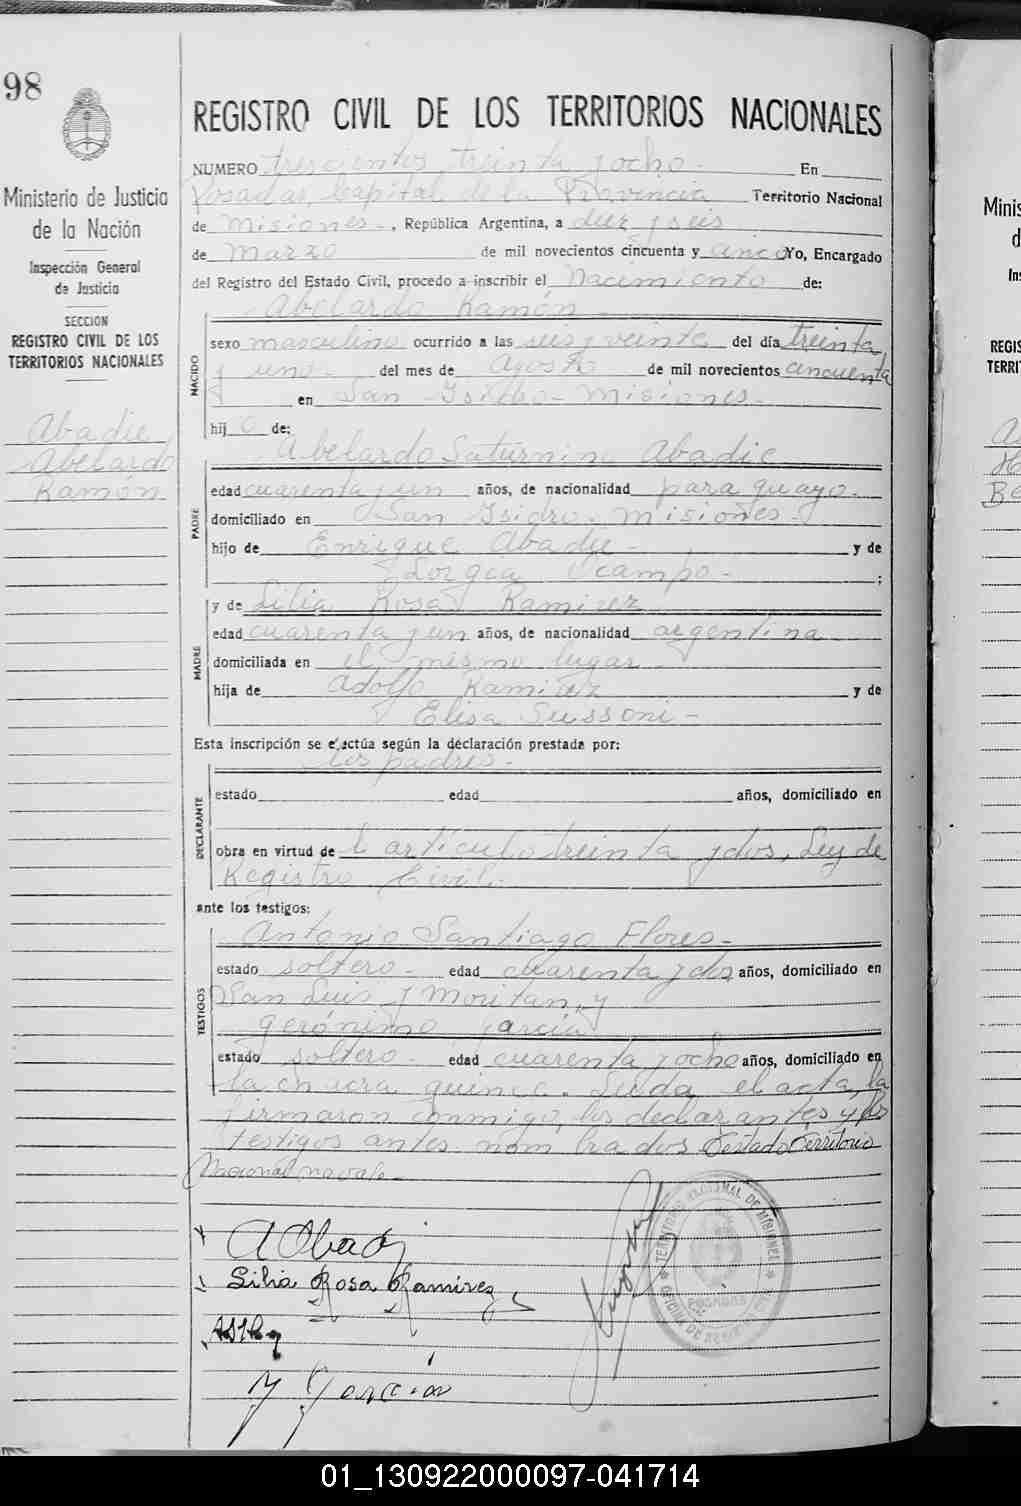 98
Ministerio de Justicia
de la Nación
Inspección General
de Justicia
SECCION
REGISTRO CIVIL DE LOS
TERRITORIOS NACIONALES
Abadie
Abelardo
Ramón
REGISTRO CIVIL DE LOS TERRITORIOS NACIONALES
NUMERO trescientos treinta y ocho - En
Posadas, Capital de la Provincia Territorio Nacional
de Misiones -, República Argentina, a diez y seis
de Marzo de mil novecientos cincuenta y cinco Yo, Encargado
del Registro del Estado Civil, procedo a inscribir el Nacimiento de:
Abelardo Ramón -
NACIDO
sexo masculino ocurrido a las seis y veinte del día treinta
y uno - del mes de Agosto de mil novecientos cincuenta
en San Isidro - Misiones -
hijo de:
Abelardo Saturnino Abadie
PADRE
edad cuarenta y un años, de nacionalidad paraguayo -
domiciliado en San Isidro - Misiones -
hijo de Enrique Abadie - y de
Ocampo - ;
MADRE
y de Lilia Rosa Ramirez
edad cuarenta y un años, de nacionalidad argentina
domiciliada en el mismo lugar
hija de Adolfo Ramirez y de
Elisa Sussoni -
Esta inscripción se efectúa según la declaración prestada por:
los padres -
DECLARANTE
estado edad años, domiciliado en
obra en virtud de l artículo treinta y dos, Ley de
Registro Civil -
ante los testigos:
Antonio Santiago Flores -
TESTIGOS
estado soltero - edad cuarenta y dos años, domiciliado en
San Luis y Moritan, y
Gerónimo Garcia
estado soltero - edad cuarenta y ocho años, domiciliado en
la chacra quince. Leída el acta, la
firmaron conmigo, los declarantes y los
testigos antes nombrados Testado Territorio
Nacional no vale -
A Abadie
Lilia Rosa Ramirez
Garcia
TERRITORIO NACIONAL DE MISIONES
POSADAS
01_130922000097-041714